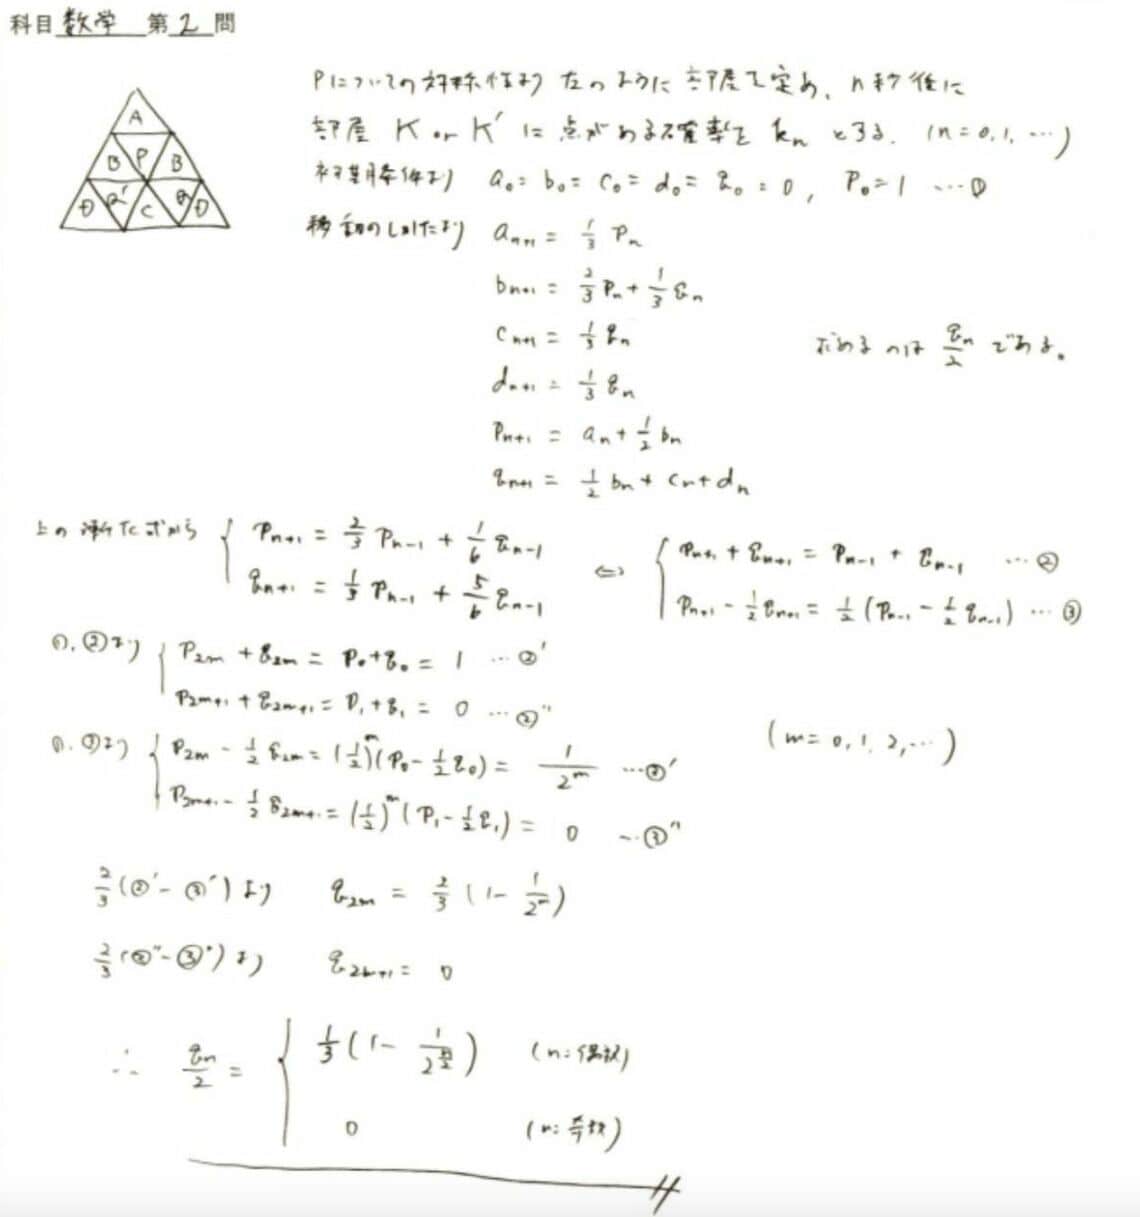 科目 数学 第 2 問
A
B P B
D Q' C Q D
Pについての対称性より 左のように 部屋を定め、n秒後に
部屋 K or K' に 点がある確率を kn とする. (n = 0, 1, …)
初期条件より a₀ = b₀ = c₀ = d₀ = q₀ = 0, P₀ = 1 …①
移動のしかたより aₙ₊₁ = 1/3 Pₙ
bₙ₊₁ = 2/3 Pₙ + 1/3 qₙ
cₙ₊₁ = 1/3 qₙ
求めるのは qₙ/2 である。
dₙ₊₁ = 1/3 qₙ
Pₙ₊₁ = aₙ + 1/2 bₙ
qₙ₊₁ = 1/2 bₙ + cₙ + dₙ
上の漸化式から { Pₙ₊₁ = 2/3 Pₙ₋₁ + 1/6 qₙ₋₁ ⇔ { Pₙ₊₁ + qₙ₊₁ = Pₙ₋₁ + qₙ₋₁ …②
qₙ₊₁ = 1/3 Pₙ₋₁ + 5/6 qₙ₋₁ Pₙ₊₁ - 1/2 qₙ₊₁ = 1/2 (Pₙ₋₁ - 1/2 qₙ₋₁) …③
①, ②より { P₂ₘ + q₂ₘ = P₀ + q₀ = 1 …②'
P₂ₘ₊₁ + q₂ₘ₊₁ = P₁ + q₁ = 0 …②"
(m = 0, 1, 2, …)
①, ③より { P₂ₘ - 1/2 q₂ₘ = (1/2)^m (P₀ - 1/2 q₀) = 1/2^m …③'
P₂ₘ₊₁ - 1/2 q₂ₘ₊₁ = (1/2)^m (P₁ - 1/2 q₁) = 0 …③"
2/3 (②' - ③') より q₂ₘ = 2/3 (1 - 1/2^m)
2/3 (②" - ③") より q₂ₘ₊₁ = 0
∴ qₙ/2 = { 1/3 (1 - 1/2^(n/2)) (n: 偶数)
0 (n: 奇数)